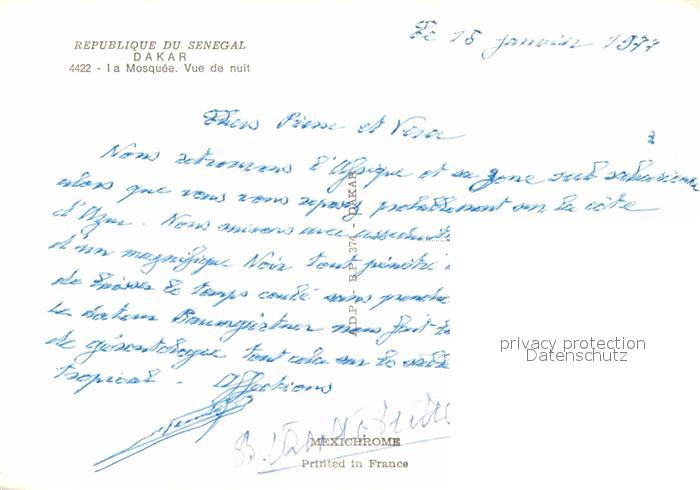 REPUBLIQUE DU SENEGAL
DAKAR
4422 - La Mosquée. Vue de nuit
Le 15 janvier 1977
Chers Pierre et
Nous retrouvons l'Afrique et sa zone sub saharienne
alors que vous vous reposez probablement sur la côte
d'Azur. Nous suivons avec
d'un magnifique Noir tout pénétré
de laisser le temps couler sans prendre
Le docteur Baumgartner nous fait
de gérontologie tout cela sur le sable
tropical. Affections
A.D.P. - B.P. 374 - DAKAR
privacy protection
Datenschutz
MEXICHROME
Printed in France